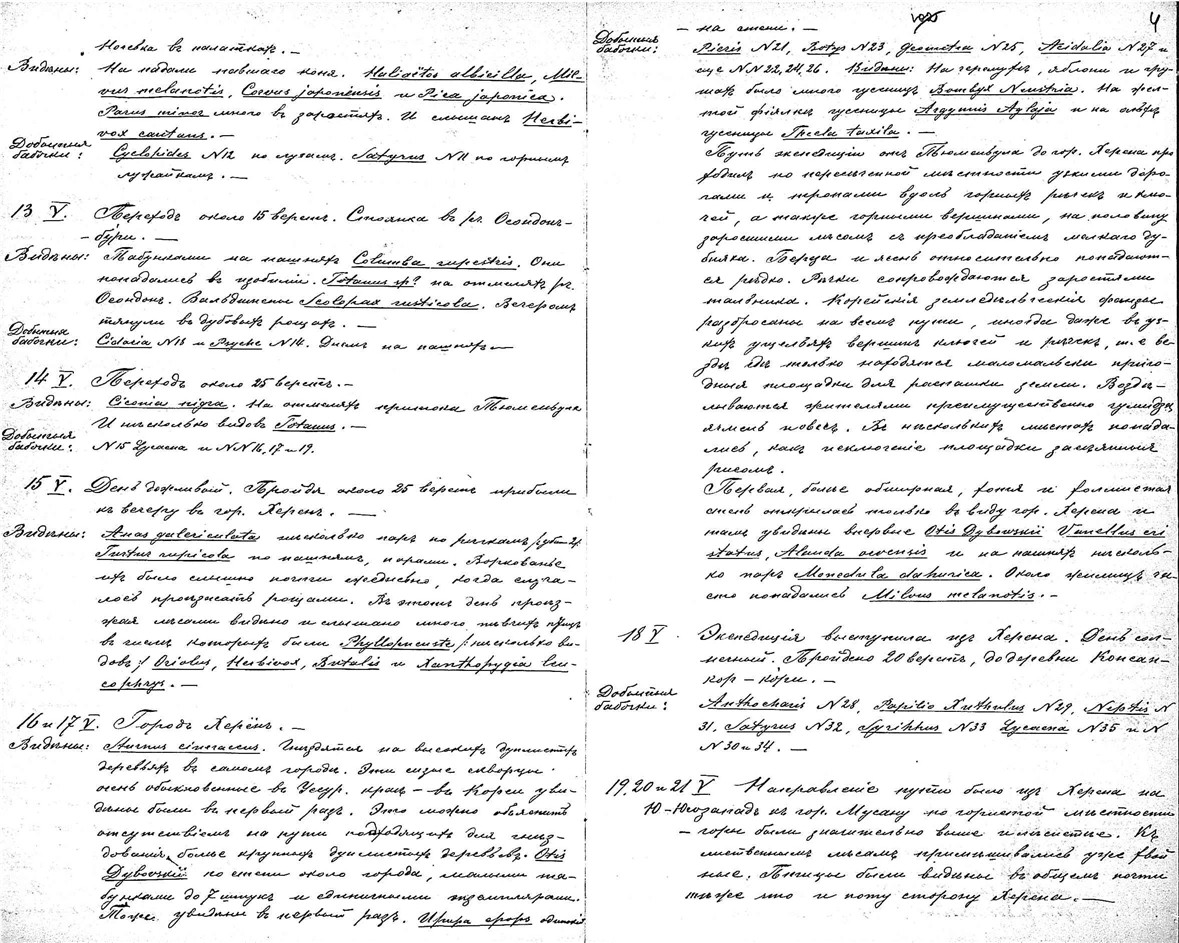 Ночевка въ палаткахъ. —
Видѣны: На падали павшаго коня. Haliaëtos albicilla, Mil-
vus melanotis, Corvus japonensis и Pica japonica.
Parus minor много въ заростяхъ. И слышанъ Herbi-
vox cantans. —
Добытыя бабочки: Cyclopides N12 по лугамъ. Satyrus N11 по горнымъ
лужайкамъ. —
13 V. Переходъ около 15 верстъ. Стоянка въ рч. Осондонъ-
бури. —
Видѣны: Табунками на пашняхъ Columba rupestris. Они
попадались въ изобилии. Totanus sp? на отмеляхъ рч.
Осондон. Вальдшнепы Scolopax rusticola. Вечеромъ
тянули въ дубовыхъ рощахъ. —
Добытыя бабочки: Cidaria N13 и Psyche N14. Днемъ на пашняхъ —
14 V. Переходъ около 25 верстъ. —
Видѣны: Ciconia nigra. На отмеляхъ притока Тюменьула
И нѣсколько видовъ Totanus. —
Добытыя бабочки: N15 Lycaena и NN16, 17 и 19.
15 V. День дожливый. Пройдя около 25 верстъ прибыли
къ вечеру въ гор. Херенъ. —
Видѣны: Anas galericulata нѣсколько паръ по рѣчкамъ
Turtur rupicola по пашнямъ, парами. Воркованье
ихъ было слышно почти ежедневно, когда случа-
лось проѣзжать рощами. Въ этотъ день проѣз-
жая лѣсами видѣно и слышано много пѣвчихъ птицъ
въ числѣ которыхъ были Phyllopneuste /: нѣсколько ви-
довъ :/ Oriolus, Herbivox, Butalis и Xanthopygia leu-
cophrys. —
16 и 17 V. Городъ Херёнъ. —
Видѣны: Sturnus cineraceus. Гнѣздятся на высокихъ дуплистыхъ
деревьяхъ въ самомъ городѣ. Эти сизые скворцы
очень обыкновенные въ Усур. краѣ — въ Кореи уви-
дѣны были въ первый разъ. Это можно объяснить
отсутствіемъ на пути подходящихъ для гнѣз-
дованія, болѣе крупныхъ дуплистыхъ деревьевъ. Otis
Dybovskii по степи около города, малыми та-
бунками до 7 штукъ и единичными экземплярами.
Тоже увидѣны въ первый разъ. Upupa epops одиноки
4
— на степи. —
Добытыя бабочки: Pieris N21, Botys N23, Geometra N25, Acidalia N27 и
еще NN 22, 24, 26. Видѣны: На черемухѣ, яблони и гру-
шахъ было много гусеницъ Bombyx Neustria. На жел-
той фіялкѣ гусеницы Argynnis Aglaja и на ольхѣ
гусеницы Thecla taxila. —
Путь экспедиціи отъ Тюменьула до гор. Херена про
ходилъ по пересѣченной мѣстности узкими доро-
гами и тропами вдоль горныхъ рѣчекъ и клю-
чей, а также горными вершинами, на половину
заросшими лѣсомъ съ преобладаніемъ мелкаго ду-
бняка. Береза и ясень относительно попадают-
ся рѣдко. Рѣчки сопровождаются заростями
тальника. Корейскія земледѣльческія фанзы
разбросаны на всемъ пути, иногда даже въ уз-
кихъ ущельяхъ вершинъ ключей и рѣчекъ, т.е. ве-
здѣ гдѣ только находятся маломальски приго-
дныя площадки для распашки земли. Воздѣ-
лываются жителями преимущественно
ячмень и овесъ. Въ нѣсколькихъ мѣстахъ попада-
лись, какъ исключеніе площадки засѣянныя
рисомъ.
Первая, болѣе обширная, хотя и холмистая
степь открылась только въ виду гор. Херена и
тамъ увидѣны впервые Otis Dybowskii Vanellus cri
status, Alauda arvensis и на пашняхъ нѣсколь-
ко паръ Monedula dahurica. Около жилищъ ча-
сто попадались Milvus melanotis. —
18 V. Экспедиція выступила изъ Херена. День сол-
нечный. Пройдено 20 верстъ, до деревни Консан-
кор — кори. —
Добытыя бабочки: Anthocharis N28, Papilio Xuthulus N29, Neptis N
31, Satyrus N32, Syrichtus N33 Lycaena N35 и N
N 30 и 34. —
19, 20 и 21 V Направленіе пути было изъ Херена на
Ю-Югозападъ къ гор. Мусану по гористой мѣстности
— горы были значительно выше и лѣсистые. Къ
лиственнымъ лѣсамъ примѣшивались уже хвой
ные. Птицы были видѣны въ общемъ почти
тѣже что и по ту сторону Херена. —